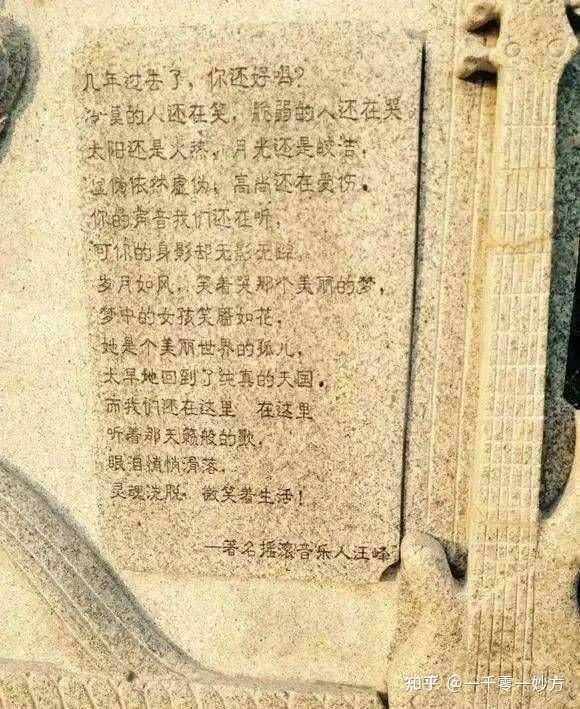 几年过去了，你还好吗？
冷漠的人还在笑，脆弱的人还在哭。
太阳还是火热，月光还是皎洁，
虚伪依然虚伪，高尚还在受伤。
你的声音我们还在听，
可你的身影却无影无踪。
岁月如风，笑着哭那个美丽的梦，
梦中的女孩笑靥如花，
她是个美丽世界的孤儿，
太早地回到了纯真的天国。
而我们还在这里 在这里
听着那天籁般的歌，
眼泪悄悄滑落，
灵魂洗脱，微笑着生活！
—著名摇滚音乐人汪峰
知乎 @一千零一妙方